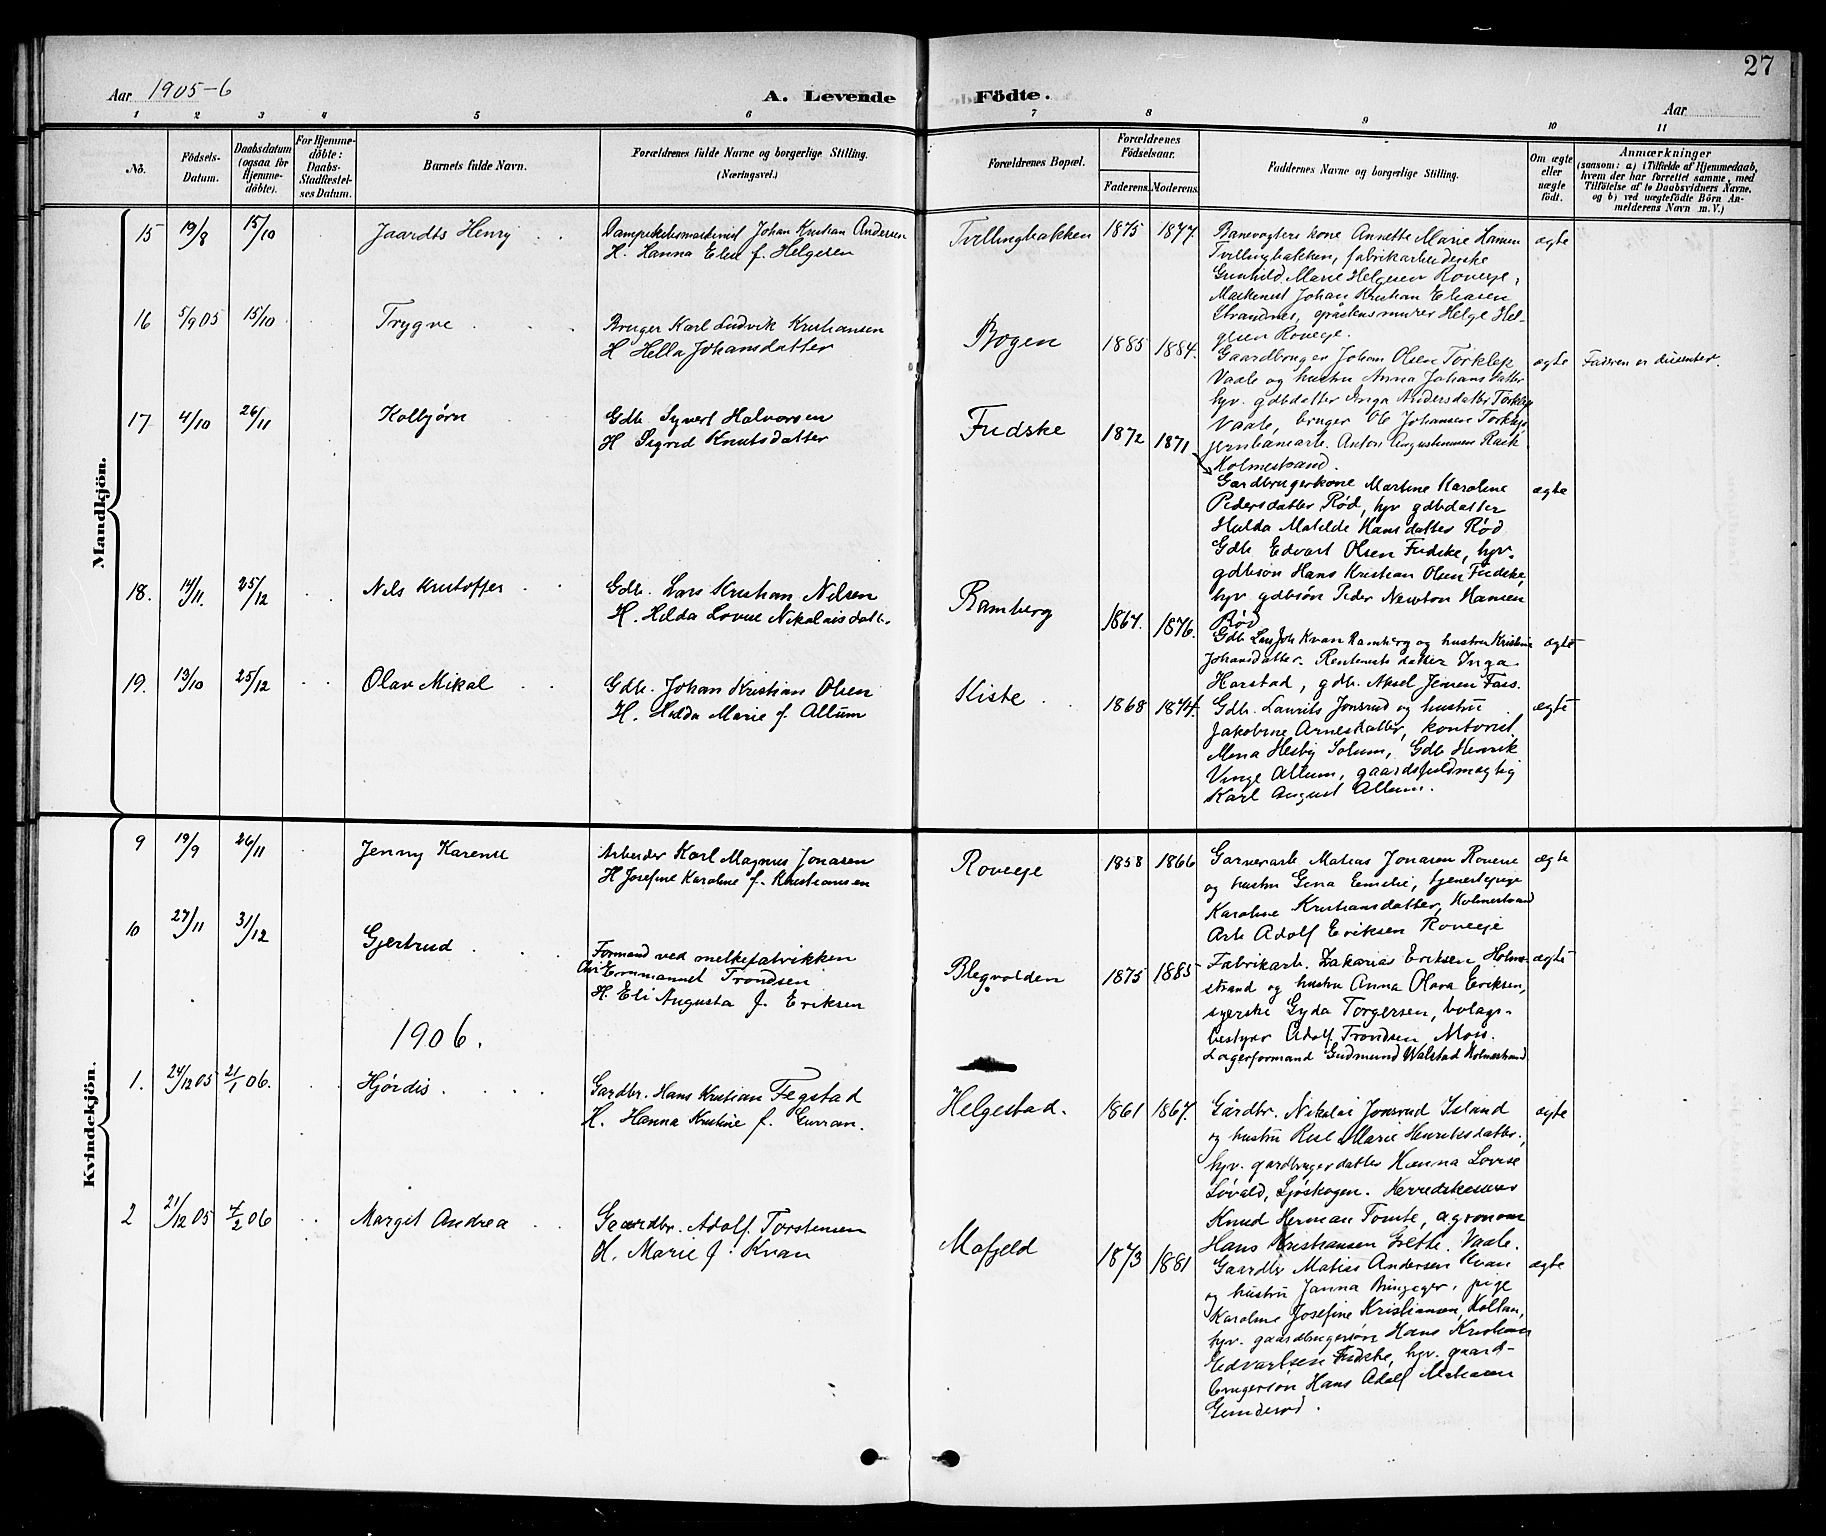 27
Aar 1905-6
A. Levende Födte.
Aar
1 2 3 4 5 6 7 8 9 10 11
No.
Födsels-Datum.
Daabsdatum (ogsaa for Hjemmedöbte).
For Hjemmedöbte: Daabs-Stadfæstelses Datum.
Barnets fulde Navn.
Forældrenes fulde Navne og borgerlige Stilling. (Næringsvei.)
Forældrenes Bopæl.
Forældrenes Födselsaar.
Faderens. Moderens.
Faddernes Navne og borgerlige Stilling.
Om ægte eller uægte födt.
Anmærkninger
(saasom: a) i Tilfælde af Hjemmedaab, hvem der har forrettet samme, med Tilföielse af to Daabsvidners Navne, og b) ved uægtefödte Börn Anmelderens Navn m. V.)
Mandkjön.
15 19/8 15/10 Jaardts Henry
Johan Kristian Andersen
H. Hanna Elen f. Helgesen
Tvillingbakken 1875 1877.
Banevogters kone Annette Marie Hansen
Tvillingbakken, fabrikarbeiderske
Gunhild Marie Helgesen Roveie,
Maskenist Johan Kristian Eliasen
Strandnes, gråstensmurer Helge Hel-
gesen Roveie.
ægte
16 5/9 05 15/10 Trygve
Bruger Karl Ludvik Kristiansen
H Hella Johansdatter
Bogen 1885 1884.
Gaardbruger Johan Olsen Torklep
Vaale og hustru Anna Johansdatter
hjv. gdbdatter Inga Andersdatter Torklep
Vaale, bruger Ole Johansen Torklep
jernbanearb. Anton Augustinussen Rask
Holmestrand.
ægte
Faderen er dissenter.
17 4/10 26/11 Kolbjørn
Gdb. Syvert Halvorsen
H Sigrid Knutsdatter
Fudske 1872 1871
Gardbrugerkone Martine Karoline
Pedersdatter Rød, hjv gdbdatter
Hulda Matilde Hansdatter Rød
Gdb Edvart Olsen Fudske, hjv.
gdbsøn Hans Kristian Olsen Fudske,
hjv gdbsøn Peder Newton Hansen
Rød
ægte
18. 14/11. 25/12 Nils Kristoffer
Gdb. Lars Kristian Nilsen
H. Hilda Lovise Nikolaisdatt.
Ramberg 1867. 1876.
Kvan Ramberg og hustru Kristine
Johansdatter. Rentenists datter Inga
Harstad, gdb. Aksel Jensen Fars.
ægte
19. 13/10 25/12 Olav Mikal
Gdb. Johan Kristian Olsen
H. Hulda Marie f. Allum
Kiste 1868 1874.
Gdb. Laurits Jonsrud og hustru
Jakobine Arnesdatter, kontorist
Mena Hesby Solum, Gdb Henrik
Vinge Allum, gaardsfuldmægtig
Karl August Allum.
ægte
Kvindekjön.
9 19/9 26/11 Jenny Karense
Arbeider Karl Magnus Jonasen
H Josefine Karoline f. Kristiansen
Roveie 1858 1866
Garverarb Matias Jonasen Roveie
og hustru Gina Emelie, tjenestepige
Karoline Kristiansdatter, Holmestrand
Arb Adolf Eriksen Roveie
ægte
10 27/11 31/12 Gjertrud
Formand ved melkefabrikken
Emmanuel Trondsen
H. Eli Augusta f. Eriksen
Blegvolden 1875 1885
Fabrikarb. Zakarias Eriksen Holme-
strand og hustru Anna Olava Eriksen,
syerske Gyda Torgersen, bolags-
bestyrer Adolf Trondsen, Moss.
Lagerformand Gudmund Walstad Holmestrand
ægte
1906.
1. 24/12 05 21/1 06. Hjørdis
Gardbr. Hans Kristian Fegstad
H. Hanna Kristine f. Gurran.
Helgestad. 1861 1867.
Gårdbr. Nikolai Jonsrud Island
og hustru Risl Marie Henriksdatter,
hjv. gardbrugerdatter Hanna Lovise
Lövald, Sjöskogen. Herredskasserer
Knud Herman Tomte, agronom
Hans Kristiansen Grette. Vaale.
ægte
2 21/12 05 4/2 06 Margit Andrea
Gaardbr. Adolf Torstensen
H. Marie f. Kvan
Mafjeld 1873 1881
Gaardbr Matias Andersen Kvan
og hustru Janna Bringager, pige
Karoline Josefine Kristiansen, Holtan,
hjv. gaardbrugersøn Hans Kristian
Edvartsen Fudske, hjv. gaard-
brugersøn Hans Adolf Matiasen
Genderød.
ægte